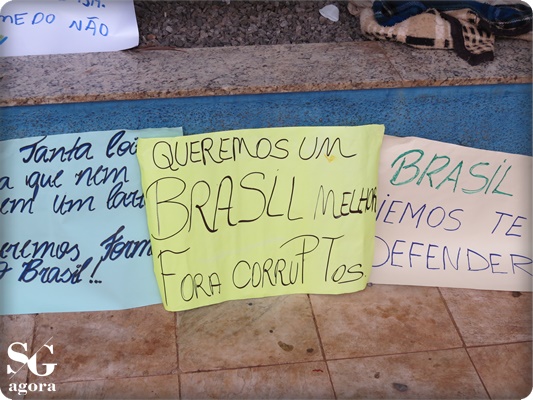 ME DO NÃO
Tanta
a que nem
em um
eremos Form
o Brasil!..
QUEREMOS UM
BRASIL MELHOR
FORA CORRUPTOS.
BRASIL
IEMOS TE
DEFENDER
SG
agora